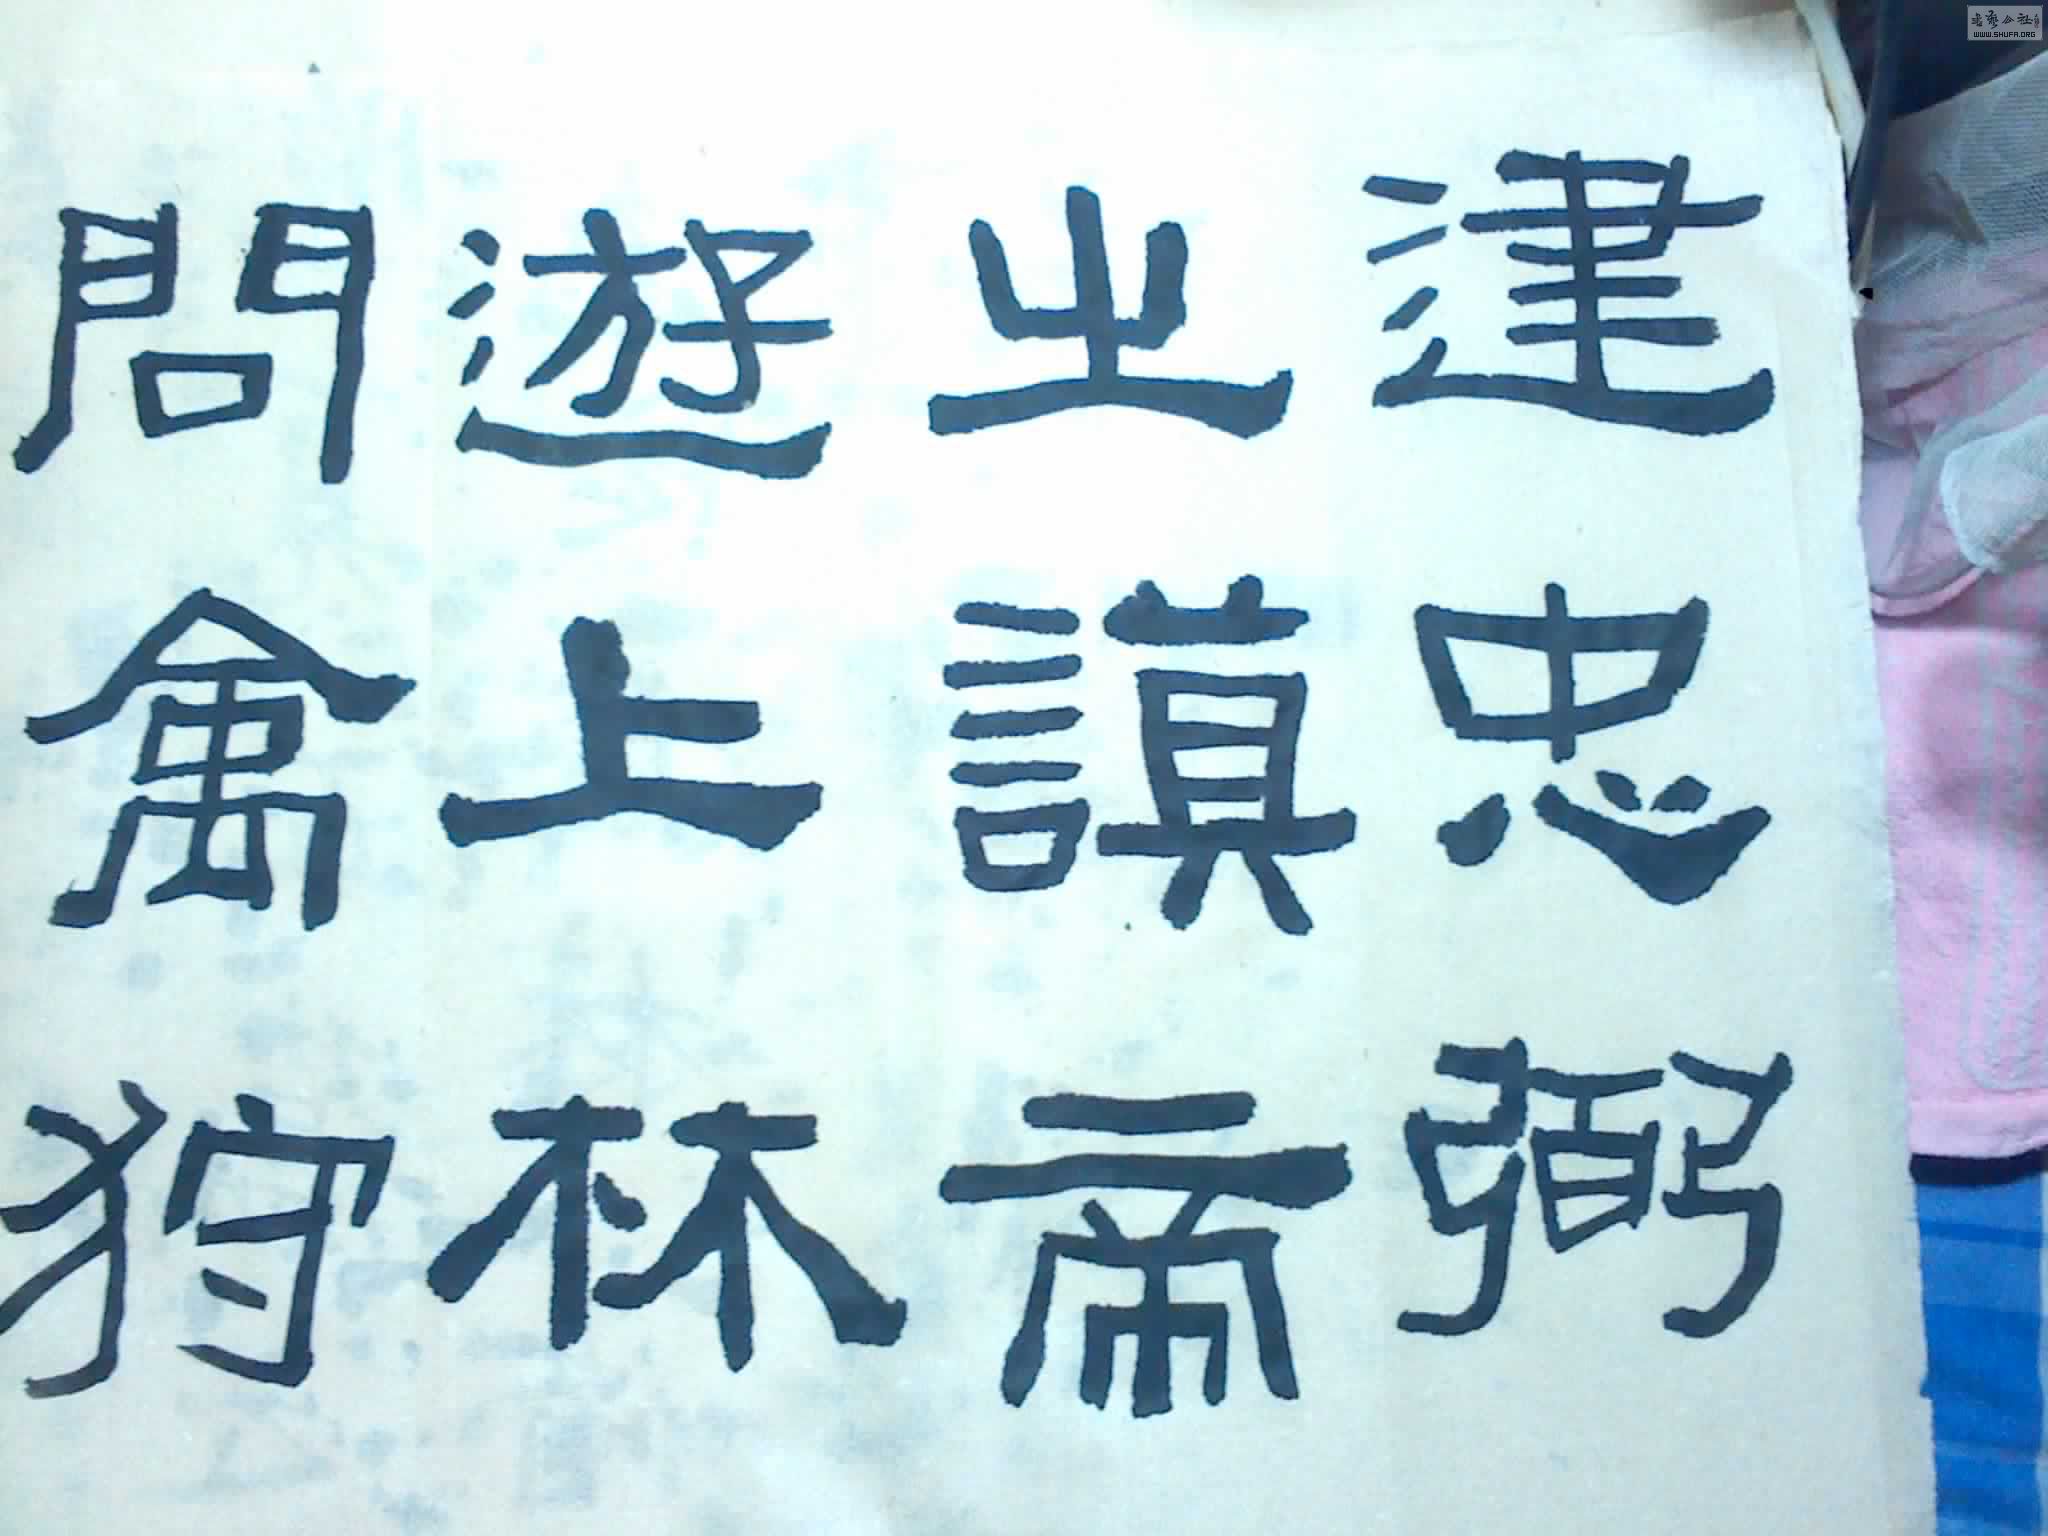 建忠弼
之謨帝
遊上林
問禽狩
書藝公社
WWW.SHUFA.ORG